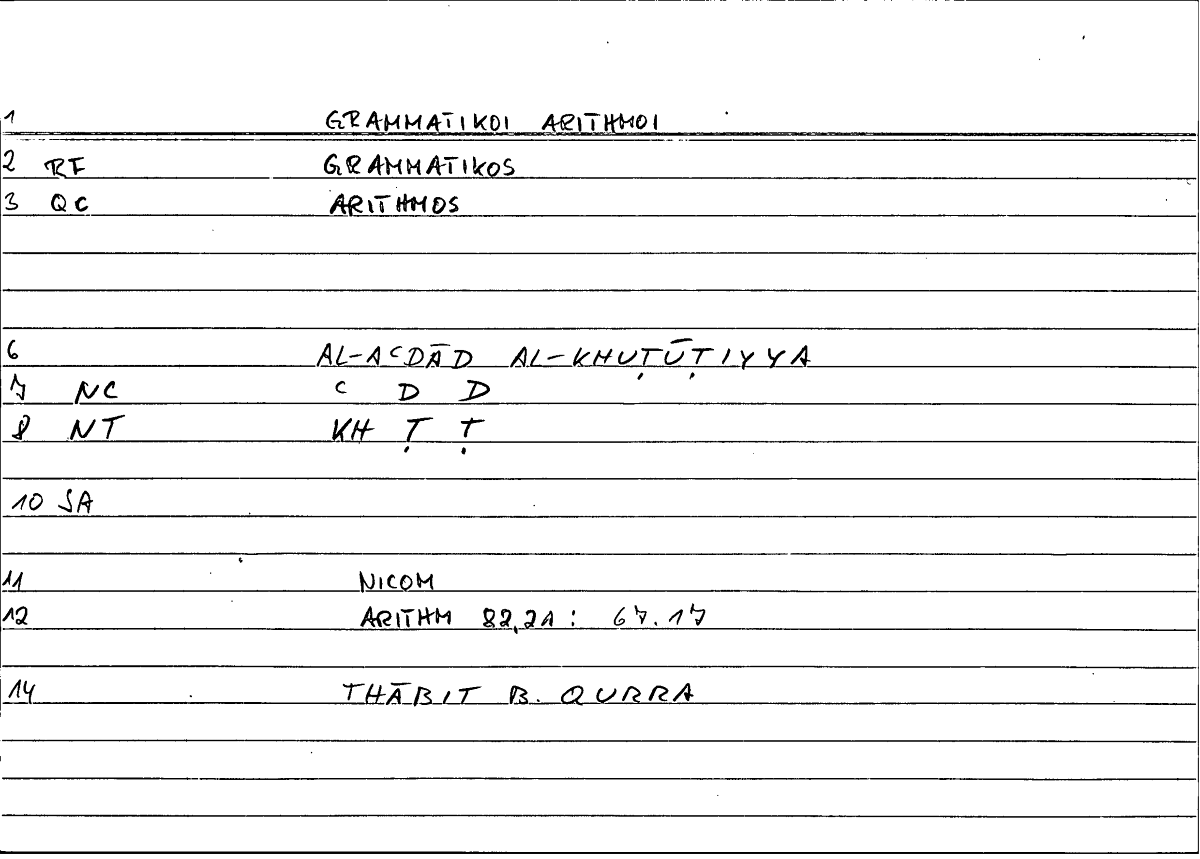 1 GRAMMATIKOI ARITHMOI
2 RF GRAMMATIKOS
3 QC ARITHMOS
6 AL-AʿDĀD AL-KHUṬŪṬIYYA
7 NC ʿ D D
8 NT KH Ṭ Ṭ
10 SA
11 NICOM
12 ARITHM 82,21: 67.17
14 THĀBIT B. QURRA